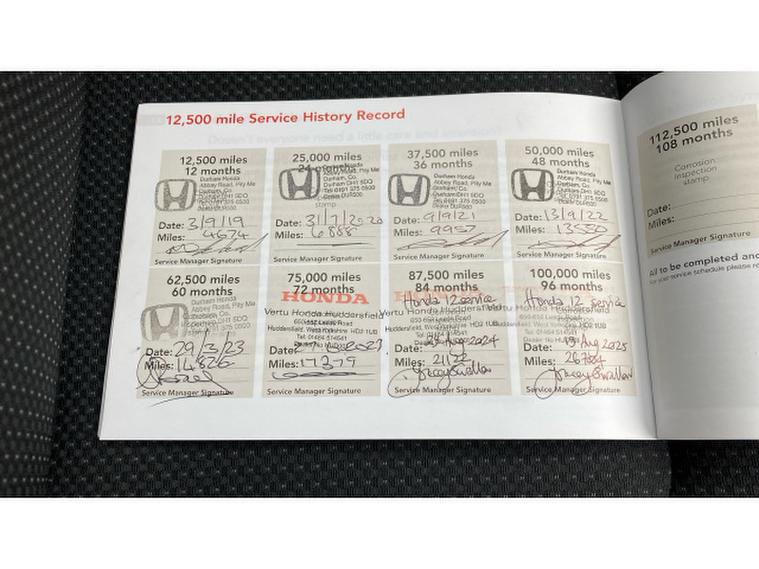 12,500 mile Service History Record
12,500 miles
12 months
Durham Honda
Abbey Road, Pity Me
Durham, Co.
Durham DH1 5DQ
Date: 3/9/19
Miles: 4674
Service Manager Signature
25,000 miles
24 months
Abbey Road, Pity Me
Durham, Co.
Durham DH1 5DQ
Tel 0191 375 0500
stamp
Date: 31/7/2020
Miles: 6888
Service Manager Signature
37,500 miles
36 months
Durham Honda
Abbey Road, Pity Me
Durham, Co.
Durham DH1 5DQ
Date: 9/9/21
Miles: 9957
Service Manager Signature
50,000 miles
48 months
Durham Honda
Abbey Road, Pity Me
Durham, Co.
Durham DH1 5DQ
Date: 13/9/22
Miles: 13550
Service Manager Signature
62,500 miles
60 months
Durham Honda
Abbey Road, Pity Me
Durham, Co.
Date: 29/3/23
Miles: 14826
Service Manager Signature
75,000 miles
72 months
HONDA
Vertu Honda Huddersfield
Leeds Road
Huddersfield, West Yorkshire HD2 1UB
Tel: 01484 514541
Date: 2023
Miles: 17379
Service Manager Signature
87,500 miles
84 months
HONDA
Honda 12 service
Vertu Honda Huddersfield
Leeds Road
Huddersfield, West Yorkshire HD2 1UB
Tel: 01484 514541
Date: Aug 2024
Miles: 21122
Service Manager Signature
100,000 miles
96 months
Honda 12 Service
Vertu Honda Huddersfield
Leeds Road
Huddersfield, West Yorkshire HD2 1UB
Tel: 01484 514541
Date: Aug 2025
Miles:
Service Manager Signature
112,500 miles
108 months
Corrosion
inspection
stamp
Date:
Miles:
Service Manager Signature
All to be completed and
For your service schedule please re